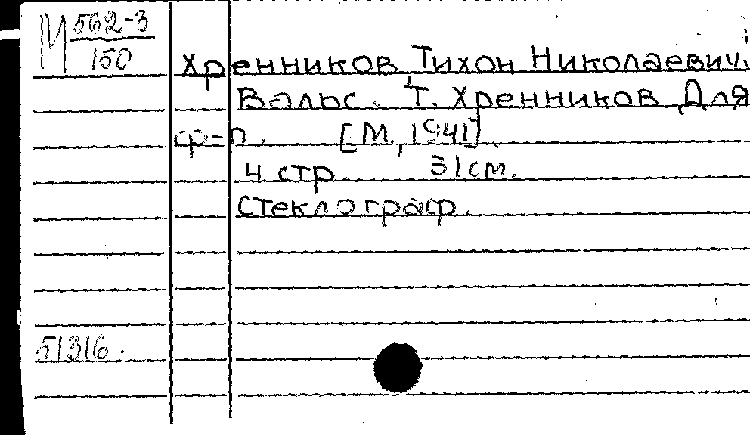 М 562-3
150
Хренников Тихон Николаевич.
Вальс. Т. Хренников Для
ф-п. [М., 1941].
4 стр. 31 см.
Стеклограф.
51316.